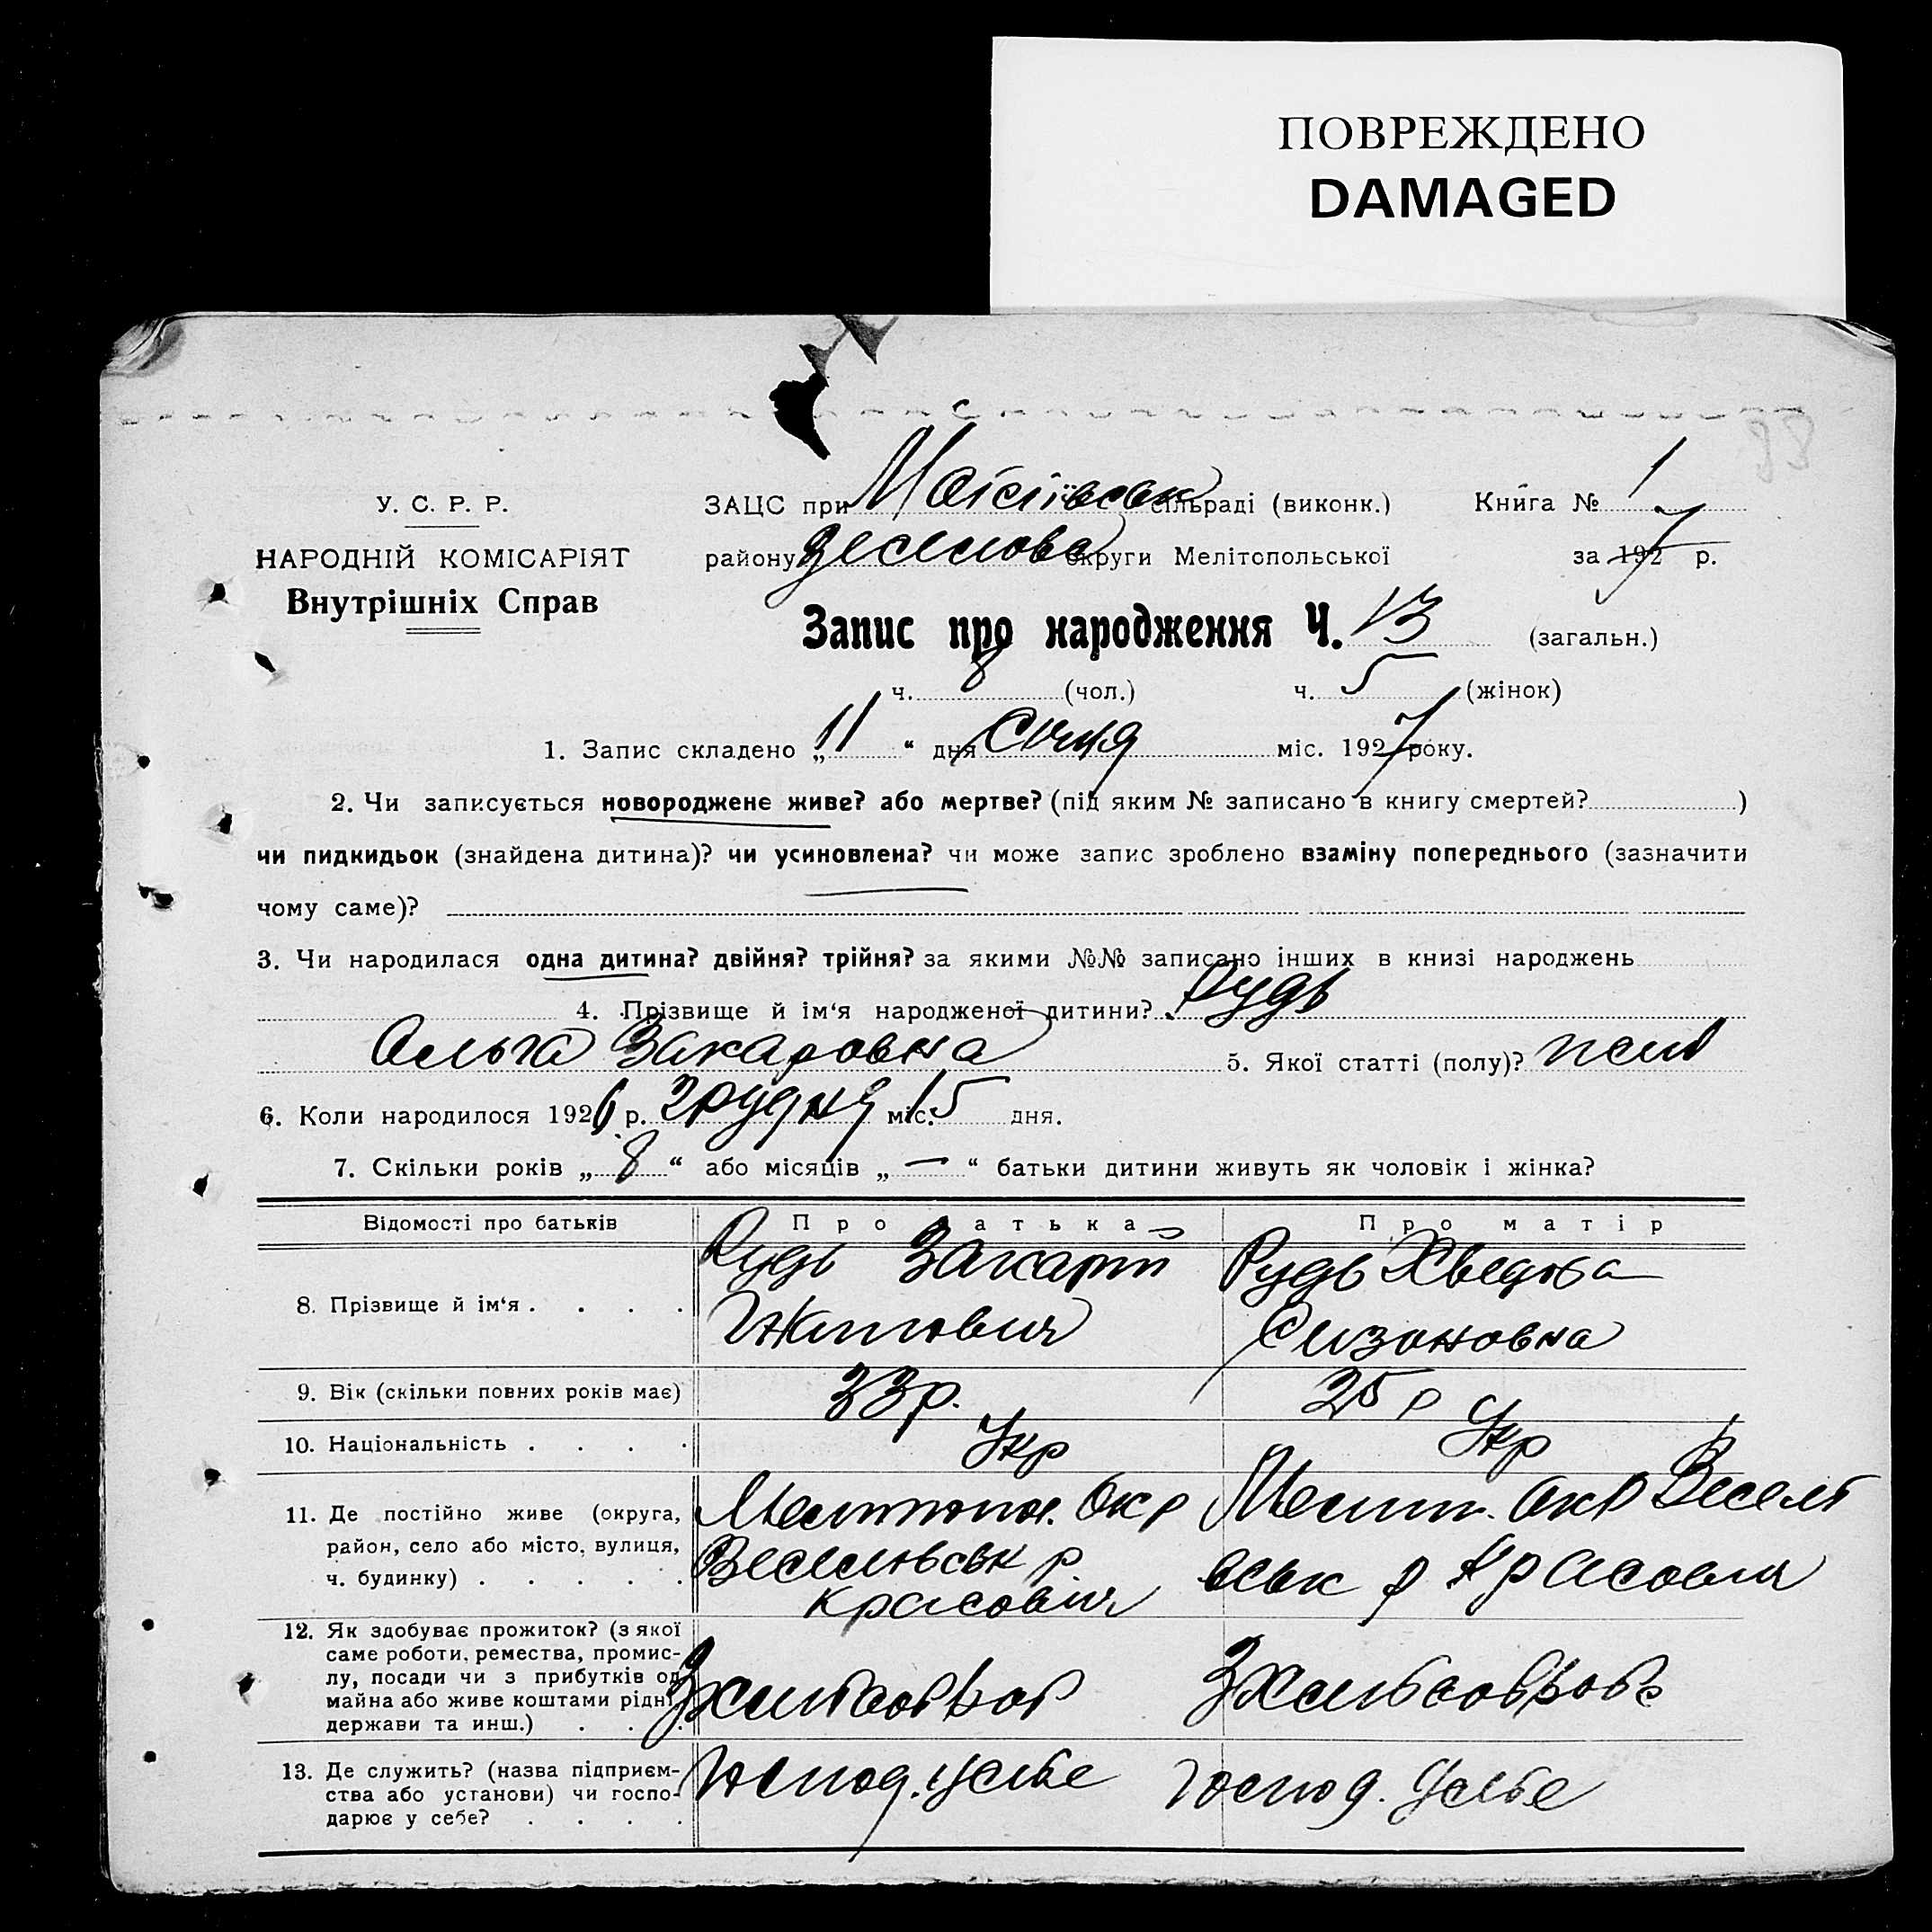 ПОВРЕЖДЕНО
DAMAGED
98
У. С. Р. Р.
НАРОДНІЙ КОМІСАРІЯТ
Внутрішніх Справ
ЗАЦС при сільраді (виконк.) Книга № 1
району округи Мелітопольської за 1927 р.
Запис про народження Ч. 13 (загальн.)
ч. 8 (чол.) ч. 5 (жінок)
1. Запис складено „11“ дня Січня міс. 1927 року.
2. Чи записується новороджене живе? або мертве? (під яким № записано в книгу смертей? )
чи пидкидьок (знайдена дитина)? чи усиновлена? чи може запис зроблено взаміну попереднього (зазначити
чому саме)?
3. Чи народилася одна дитина? двійня? трійня? за якими №№ записано інших в книзі народжень
4. Прізвище й ім‘я народженої дитини? Рудь
Ольга Захаровна 5. Якої статті (полу)?
6. Коли народилося 1926 р. Грудня міс. 15 дня.
7. Скільки років „8“ або місяців „—“ батьки дитини живуть як чоловік і жінка?
Відомості про батьків Про батька Про матір
8. Прізвище й ім‘я . . . . Рудь Рудь
Сизоновна
9. Вік (скільки повних років має) 33 р. 25 р
10. Національність . . . . Укр Укр
11. Де постійно живе (округа,
район, село або місто, вулиця,
ч. будинку) . . . . .
Окр
р
Окр
р
12. Як здобуває прожиток? (з якої
саме роботи, ремества, промис-
лу, посади чи з прибутків од
майна або живе коштами рідні,
держави та инш.) . . .
13. Де служить? (назва підприєм-
ства або установи) чи госпо-
дарює у себе? . . . .
Господ. усебе Господ. Усебе